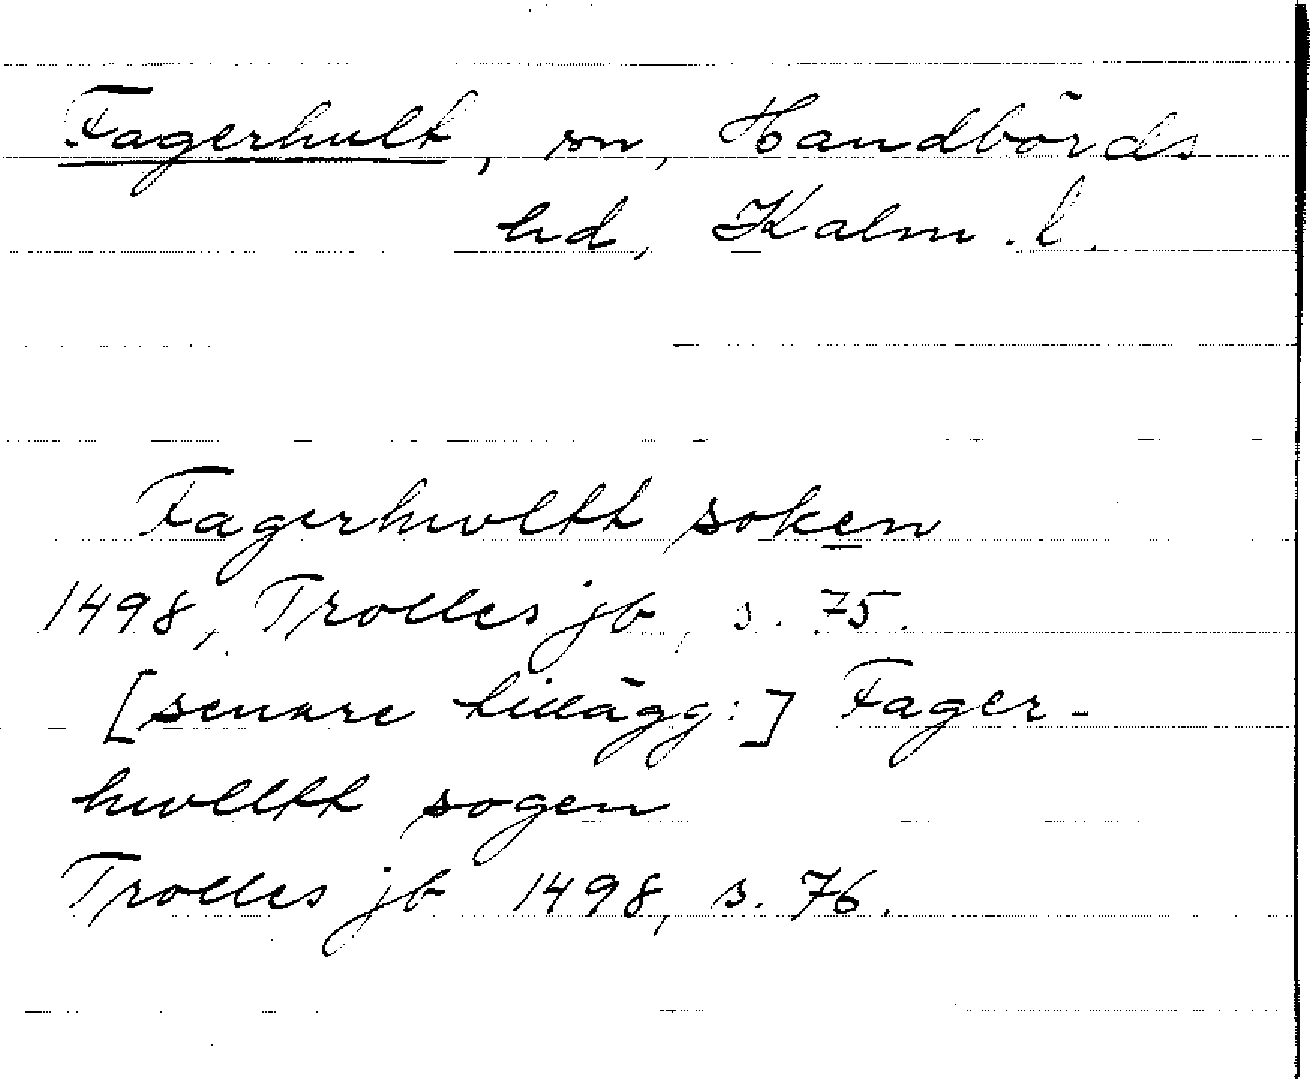 Fagerhult, sn, Handbörds
hd, Kalm. l.
Fagerhwltt soken
1498, Trolles jb, s. 75.
[senare tillägg:] Fager-
hwlltt sogen
Trolles jb 1498, s. 76.